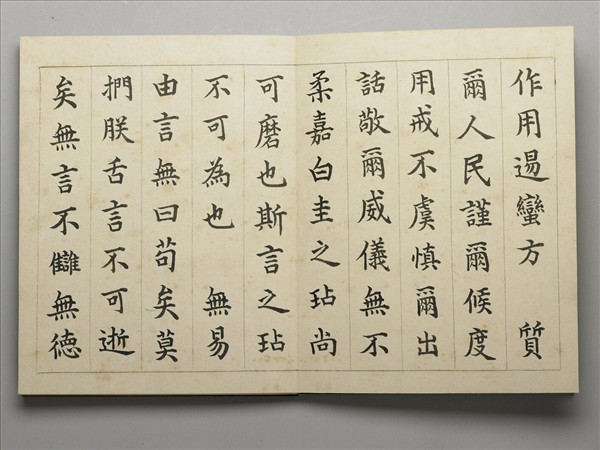 作用逷蠻方　質
爾人民謹爾候度
用戒不虞慎爾出
話敬爾威儀無不
柔嘉白圭之玷尚
可磨也斯言之玷
不可為也　無易
由言無曰苟矣莫
捫朕舌言不可逝
矣無言不讎無德